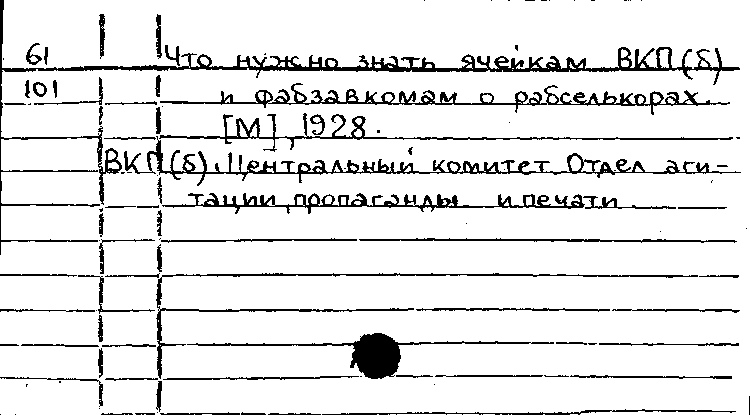 61 Что нужно знать ячейкам ВКП(б)
101 и фабзавкомам о рабселькорах.
[М], 1928.
ВКП(б). Центральный комитет. Отдел аги-
тации, пропаганды и печати.